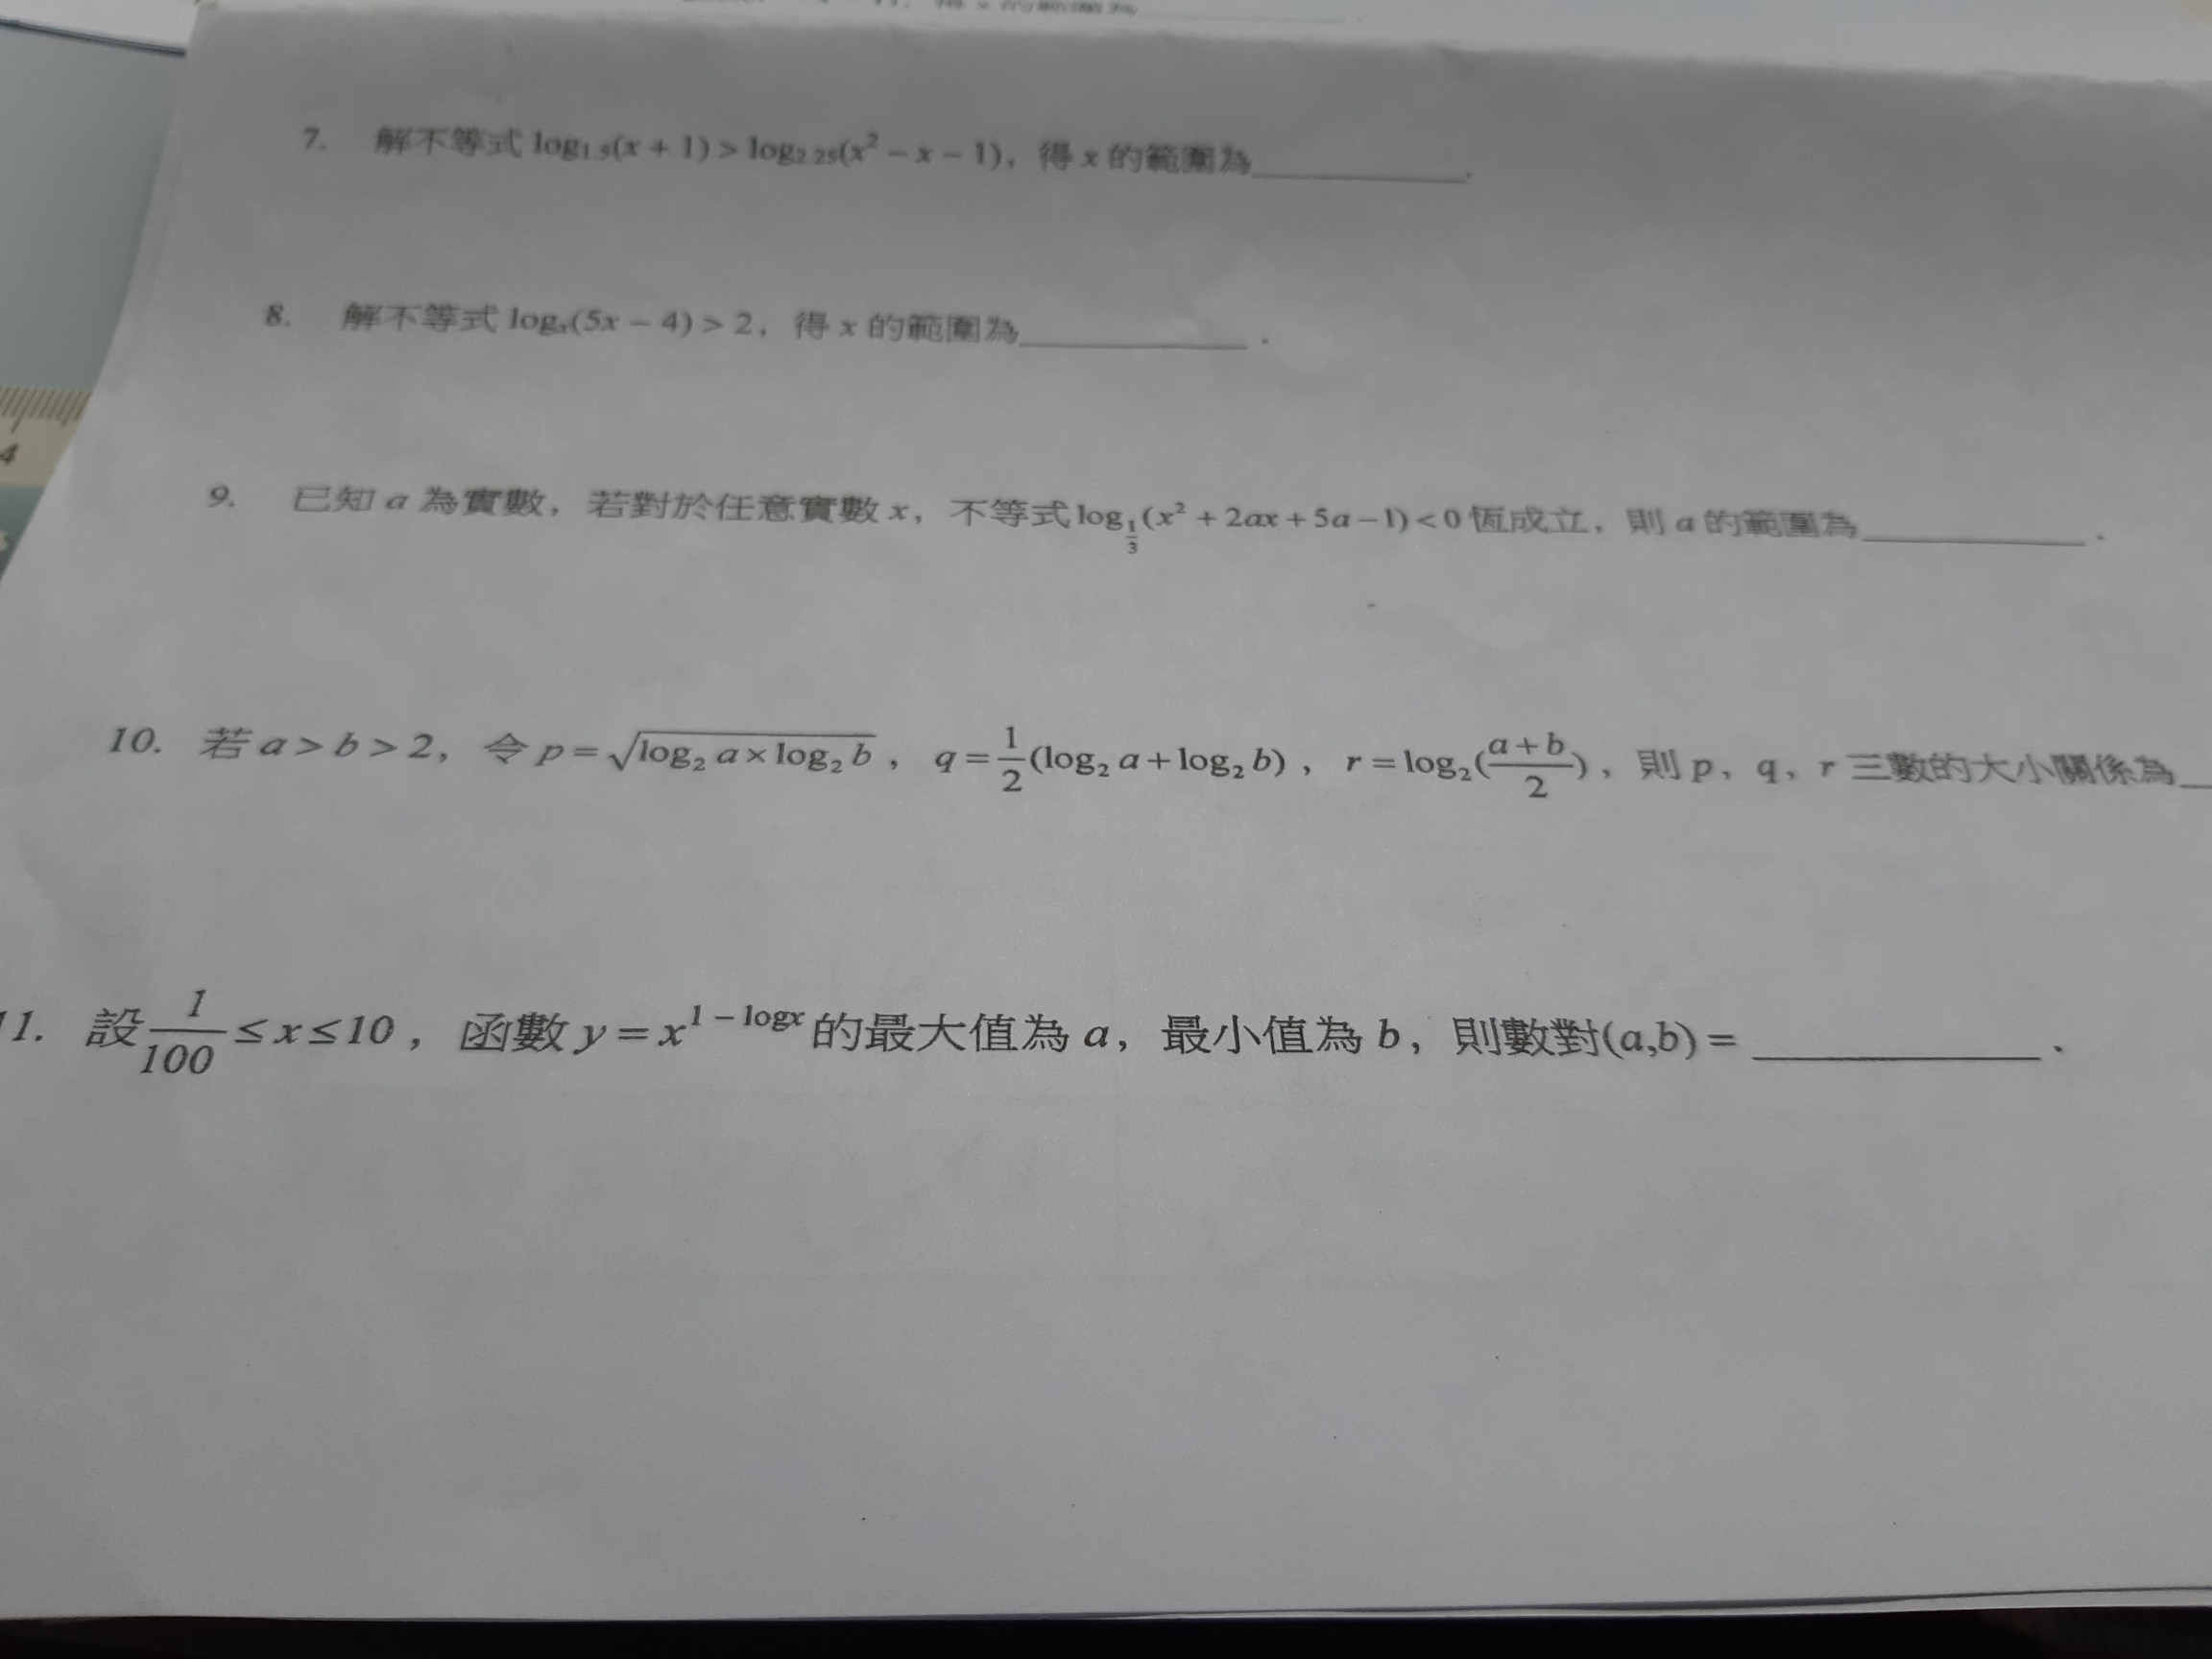 得 x 的範圍為
7. 解不等式 log₁.₅(x + 1) > log₂.₂₅(x² − x − 1)，得 x 的範圍為__________.
8. 解不等式 logₓ(5x − 4) > 2，得 x 的範圍為__________．
9. 已知 a 為實數，若對於任意實數 x，不等式 log_{1/3}(x² + 2ax + 5a − 1) < 0 恆成立，則 a 的範圍為__________．
10. 若 a > b > 2，令 p = √(log₂ a × log₂ b)，q = 1/2(log₂ a + log₂ b)，r = log₂((a + b)/2)，則 p，q，r 三數的大小關係為_
11. 設 1/100 ≤ x ≤ 10，函數 y = x^{1 − logx} 的最大值為 a，最小值為 b，則數對(a,b) = __________．
4